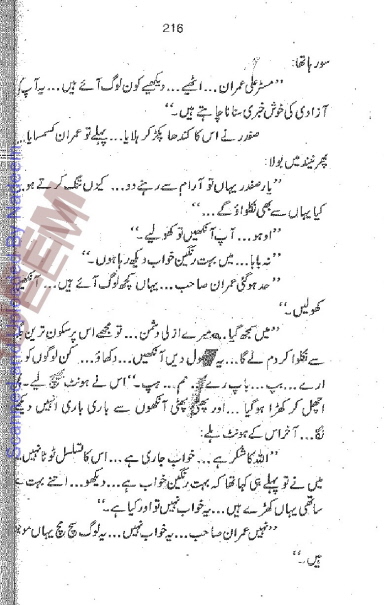 216
سو رہا تھا:
"مسٹر علی عمران... اٹھیے... دیکھیے کون لوگ آئے ہیں... یہ آپ کو
آزادی کی خوش خبری سنانا چاہتے ہیں۔"
صفدر نے اس کا کندھا پکڑ کر ہلایا... پہلے تو عمران کسمسایا...
پھر نیند میں بولا:
"یار صفدر یہاں تو آرام سے رہنے دو... کیوں تنگ کرتے ہو
کیا یہاں سے بھی نکلواؤ گے..."
"اوہو... آپ آنکھیں تو کھولیے۔"
"نہ بابا... میں بہت رنگین خواب دیکھ رہا ہوں۔"
"حد ہو گئی عمران صاحب... یہاں کچھ لوگ آئے ہیں... آنکھیں
کھولیں۔"
"میں سمجھ گیا... میرے ازلی دشمن... تو مجھے اس پر سکون ترین
سے نکلوا کر دم لے گا... یہ کھول دیں آنکھیں... دکھاؤ... کن لوگوں کو
ارے... ہپ... باپ رے... ہم... ہپ۔" اس نے ہونٹ بھینچ لیے۔
اچھل کر کھڑا ہو گیا... اور پھٹی پھٹی آنکھوں سے باری باری انہیں دیکھنے
لگا... آخر اس کے ہونٹ ہلے:
"اللہ کا شکر ہے... خواب جاری ہے... اس کا تسلسل ٹوٹا نہیں
میں نے تو پہلے ہی کہا تھا کہ بہت رنگین خواب ہے... دیکھو... اتنے بہت سے
ساتھی یہاں کھڑے ہیں... یہ خواب نہیں تو اور کیا ہے۔"
"نہیں عمران صاحب... یہ خواب نہیں... یہ لوگ سچ مچ یہاں موجود
ہیں۔"